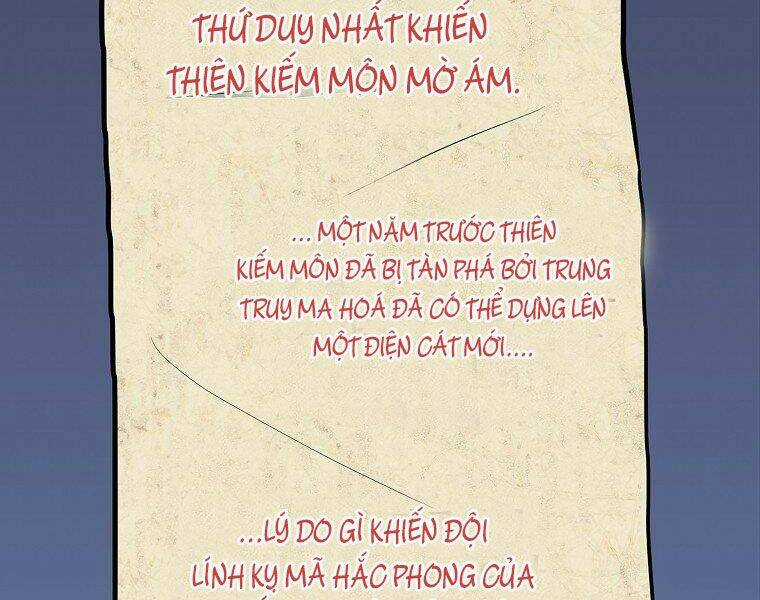 THỨ DUY NHẤT KHIẾN
THIÊN KIẾM MÔN MỜ ÁM.
... MỘT NĂM TRƯỚC THIÊN
KIẾM MÔN ĐÃ BỊ TÀN PHÁ BỞI TRUNG
TRUY MA HOÁ ĐÃ CÓ THỂ DỰNG LÊN
MỘT ĐIỆN CÁT MỚI....
...LÝ DO GÌ KHIẾN ĐỘI
LÍNH KỴ MÃ HẮC PHONG CỦA